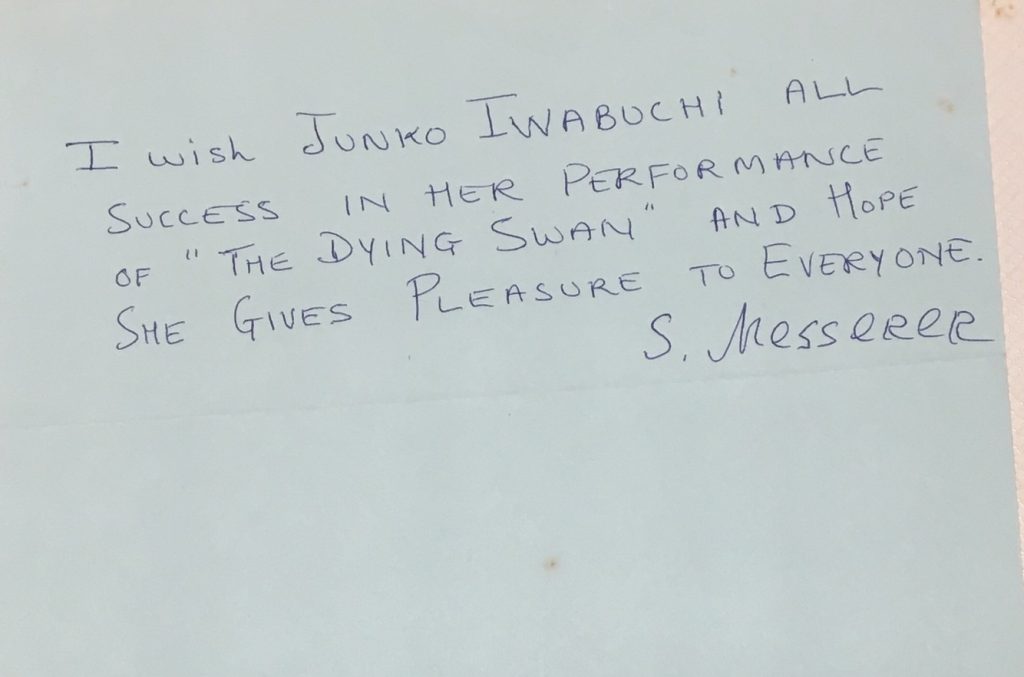 I wish JUNKO IWABUCHI ALL
SUCCESS IN HER PERFORMANCE
OF "THE DYING SWAN" AND HOPE
SHE GIVES PLEASURE TO EVERYONE.
S. Messerer